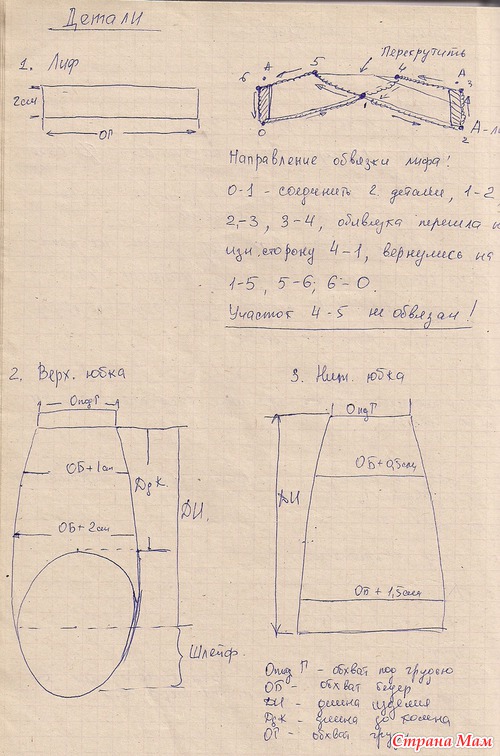 Детали
1. Лиф
2см
ОГ
Перекрутить
А
6
5
4
А
3
А
0
1
2
А-ли
Направление обвязки лифа!
0-1 - соединить 2 детали, 1-2
2-3, 3-4, обвязка перешла н
изн. сторону 4-1, вернулись на
1-5, 5-6, 6-0.
Участок 4-5 не обвязан!
2. Верх. юбка
ОподГ
ОБ+1см
ДдК.
ОБ+2см
ДИ.
Шлейф.
3. Ниж. юбка
ОподГ
ОБ+0,5см
ДИ
ОБ+1,5см
Опод Г - обхват под грудью
ОБ - обхват бедер
ДИ - длина изделия
ДдК - длина до колена
ОГ - обхват груди
Страна Мам